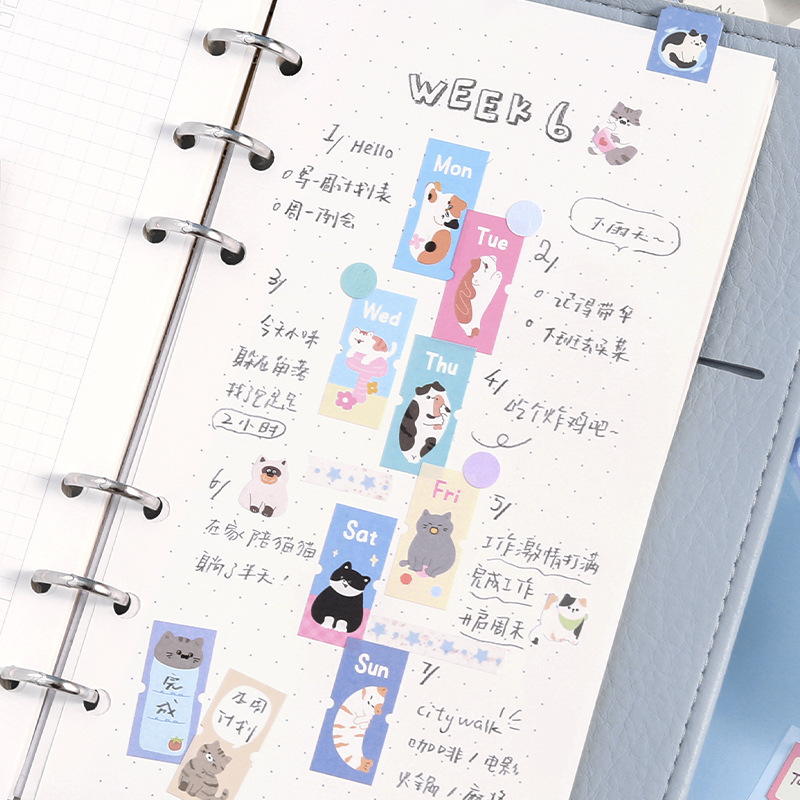 WEEK 6
1/ Hello
Mon
写一周计划表
周一例会
Tue
下雨天~
2/
记得带伞
下班去买菜
3/
Wed
今天小咪
躲在角落
找它足足
2小时
Thu
4/
吃个炸鸡吧~
Fri
5/
工作激情打满
完成工作
开启周末
6/
Sat
在家陪猫猫
躺了半天!
Sun
7/
citywalk
咖啡/电影
火锅/麻将
完
成
本周
计划